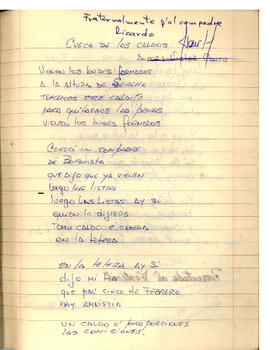 Fraternalmente p'al compadre
Ricardo
CUECA DE LOS CALDOS
VIENEN LOS BUSES FORMADOS
A LA ALTURA DE
TOMEMOS ESTE CALDITO
PARA QUITARNOS LAS PENAS
VIENEN LOS BUSES FORMADOS
CONOCI UN COMPADRE
DE
QUE DIJO QUE YA VIENEN
LUEGO LAS LISTAS
LUEGO LAS LISTAS AY SI
QUIEN LO DIJERA
TOMO CALDO E CABEZA
EN LA TETERA
EN LA TETERA AY SI
DIJO MI
QUE PAL CINCO DE FEBRERO
HAY AMNISTIA
UN CALDO O' PROPORCIONES
LAS COMISIONES.